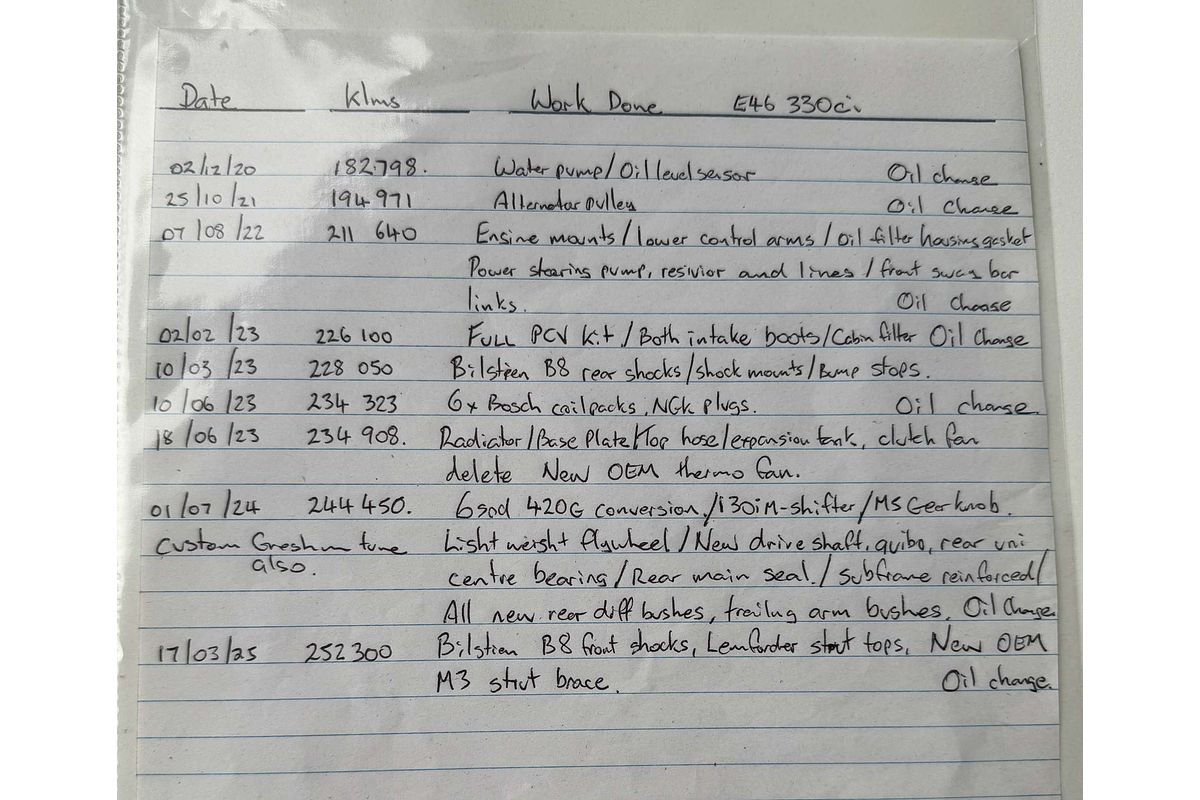 Date Klms Work Done E46 330ci.
02/12/20 182.798. Water pump/Oil level sensor Oil change
25/10/21 194 971 Alternator pulley Oil Change
07/08/22 211 640 Engine mounts/lower control arms/Oil filter housing gasket
Power stearing pump, resivior and lines/front sway bar
links. Oil change
02/02/23 226 100 FULL PCV Kit/Both intake boots/Cabin filter Oil Change
10/03/23 228 050 Bilstien B8 rear shocks/shock mounts/Bump stops.
10/06/23 234 323 6x Bosch coilpacks, NGK plugs. Oil change.
18/06/23 234 908. Radiator/Base Plate/Top hose/expansion tank, clutch fan
delete New OEM thermo fan.
01/07/24 244 450. 6spd 420G conversion./130i M-shifter/M5 Gear knob.
Custom tune Light weight flywheel/New drive shaft, guibo, rear uni
also. centre bearing/Rear main seal./Subframe reinforced/
All new rear diff bushes, trailing arm bushes, Oil Change.
17/03/25 252 300 Bilstien B8 front shocks, Lemforder strut tops, New OEM
M3 strut brace. Oil change.